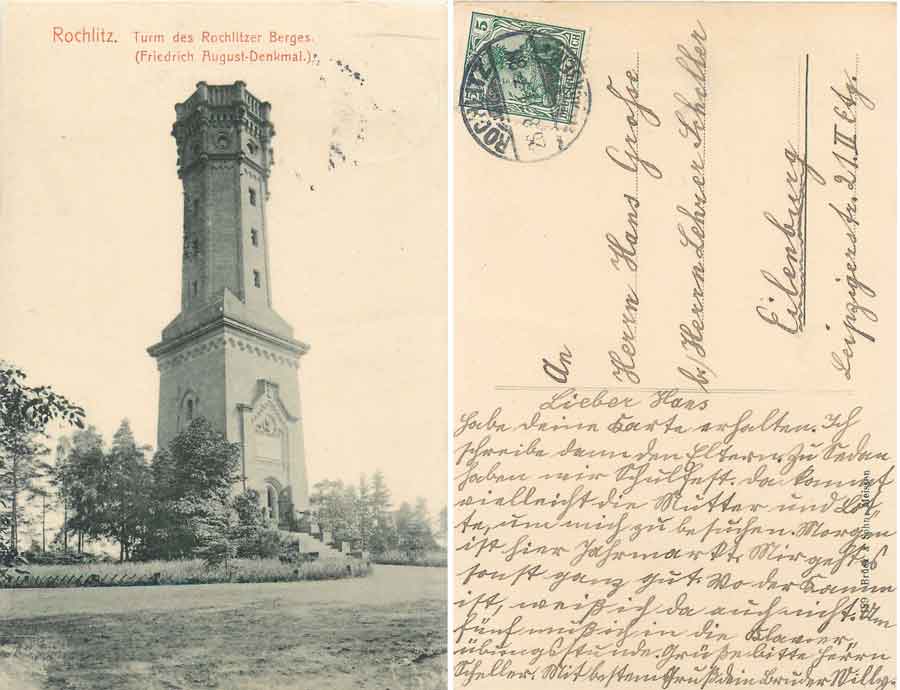 Rochlitz. Turm des Rochlitzer Berges.
(Friedrich August-Denkmal.)
5
ROCHLITZ
An
Herrn Hans Große
b/ Herrn Lehrer Scheller
Eilenburg
Leipzigerstr. 21. II Etg.
Lieber Hans
habe deine Karte erhalten. Ich
schreibe dann den Eltern. Zu Sedan
haben wir Schulfest. Da kommt
vielleicht die Mutter und
um mich zu besuchen. Morgen
ist hier Jahrmarkt. Mir geht es
sonst ganz gut. Wo der Kamm
ist, weiß ich da auch nicht. Um
fünf muß ich in die Klavier
übungsstunde. Grüße bitte Herrn
Scheller. Mit bestem Gruß dein Bruder Willy.
Brück & Sohn, Meissen